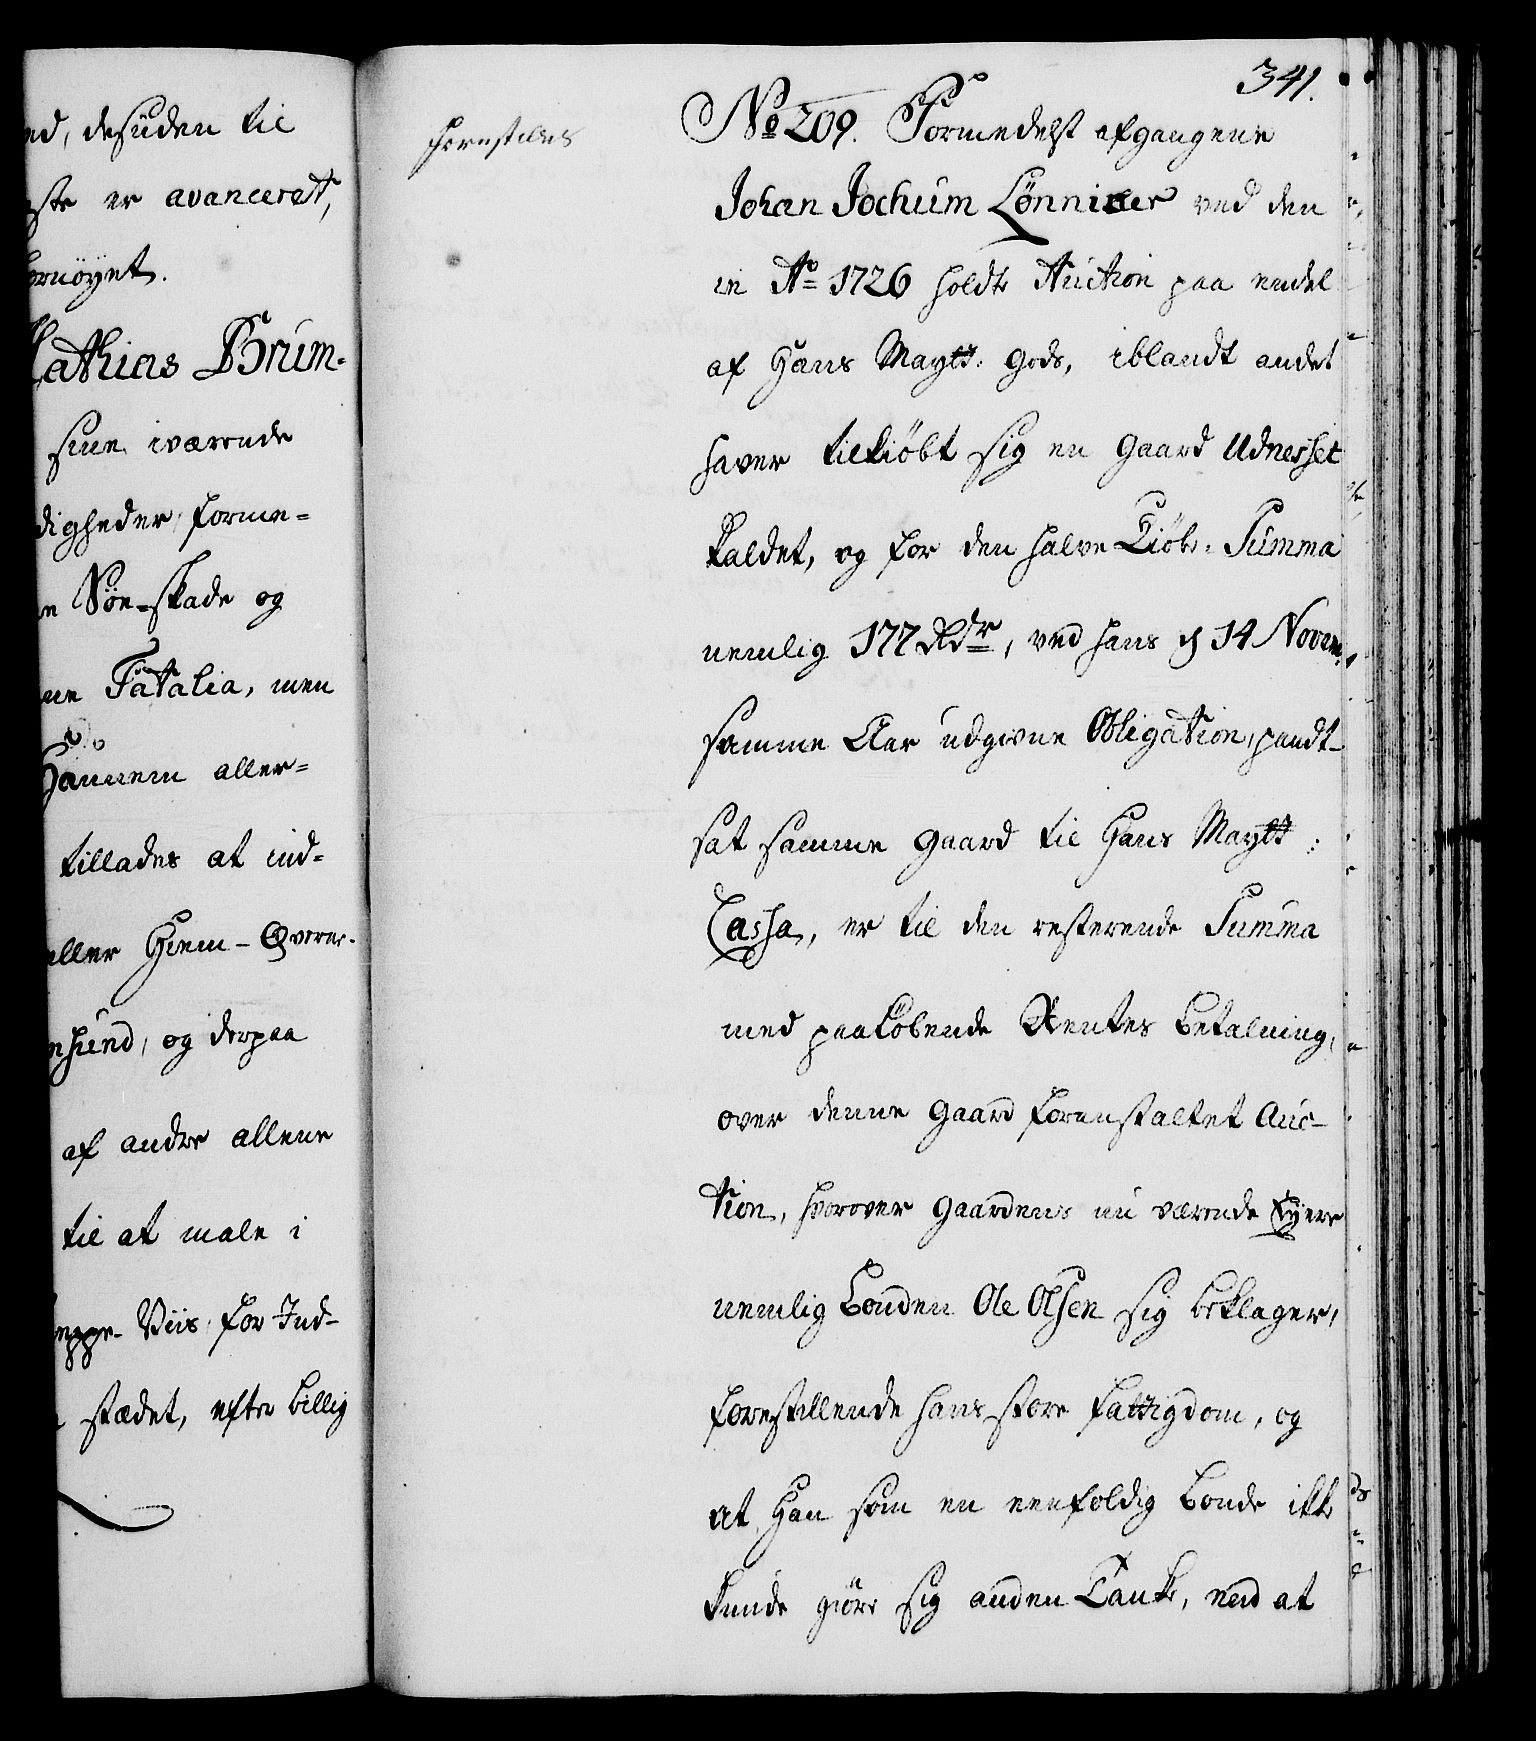 ed, desuden til
ste er avanceret,
ornöyet.
Mathias Brum-
sine iværende
digheder, forme-
Söe-skade og
ne Fatalia, men
Hannem aller-
tillades at ind-
eller Hiem-Qværne-
nsund, og derpaa
af andre allene
til at male i
Viis, for Ind-
stædet, efter billig
341.
forestilles
No 209. Formedelst afgangene
Johan Jochum Lønniker ved den
in Ao 1726 holdte Auction paa endel
af Hans Maytt: Gods, iblandt andet
haver tilkiöbt sig en Gaard Udnesset
kaldet, og for den halve Kiöbe-Summa
nemlig 177 Rdr, ved hans d 14 Novem:
samme Aar udgivne Obligation, pandt-
sat samme Gaard til Hans Maytt:
Cassa, er til den resterende Summa
med paalöbende Rentes betalning,
over denne Gaard foranstaltet Auc-
tion, hvorover Gaardens nu værende Eyere
nemlig bonden Ole Olsen sig beklager,
forestillende hans store fattigdom, og
at Han som en eenfoldig bonde ikke
kunde giöre sig anden Tanke, end at